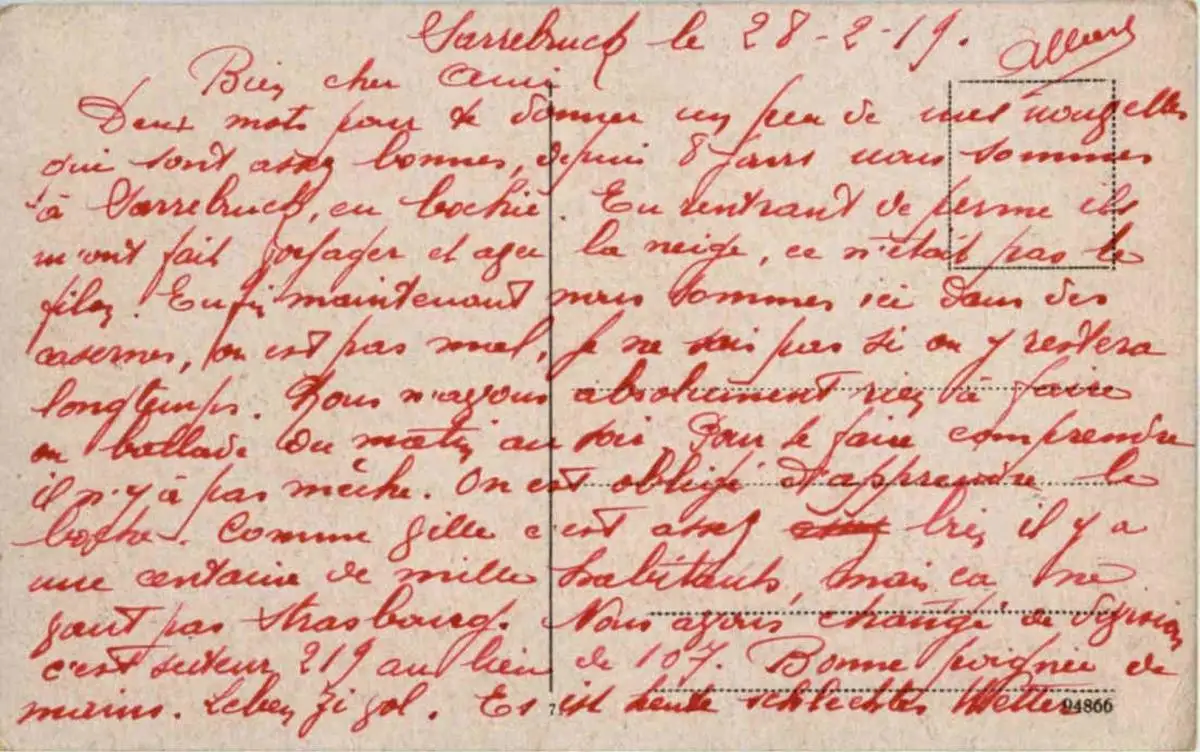 Sarrebruck le 28-2-19.
Albert
Bien cher Ami
Deux mots pour te donner un peu de mes nouvelles
qui sont assez bonnes, depuis 8 jours nous sommes
à Sarrebruck, en bochie. En rentrant de perme ils
m'ont fait voyager et avec la neige, ce n'était pas le
filon. Enfin maintenant nous sommes ici dans des
casernes, on est pas mal, je ne sais pas si on y restera
longtemps. Nous n'avons absolument rien à faire
on ballade du matin au soir. Pour se faire comprendre
il n'y à pas mèche. On est obligé d'apprendre le
boche. Comme ville c'est assez bien il y a
une centaine de mille habitants, mais ça ne
vaut pas Strasbourg. Nous avons changé de division
c'est secteur 219 au lieu de 107. Bonne poignée de
mains. Es ist heute schlechtes Wetter
7 94866